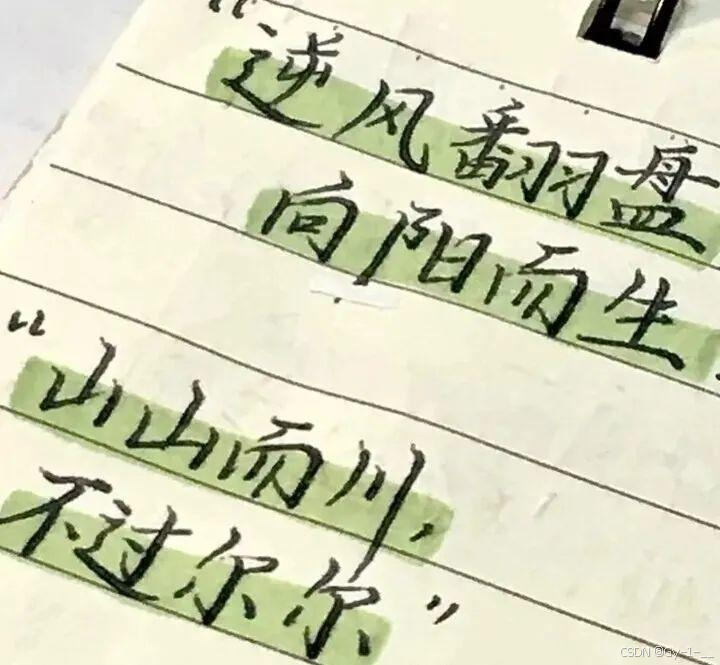 “逆风翻盘
向阳而生.
“山山而川,
不过尔尔”
CSDN @Gy-1-__